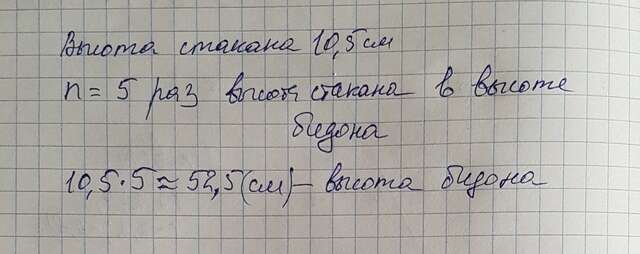 Высота стакана 10,5 см
n = 5 раз высота стакана в высоте
бидона
10,5·5 ≈ 52,5(см) – высота бидона